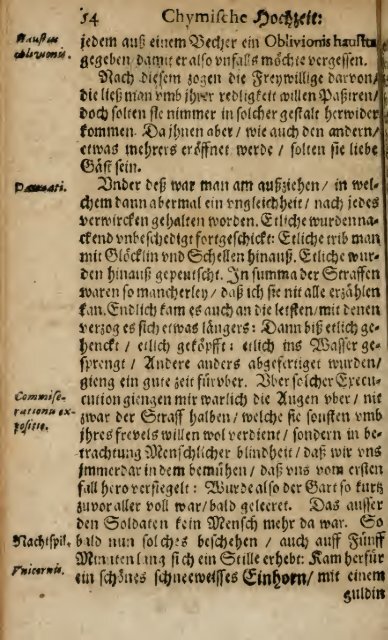 54 Chymische Hochzeit:
Haustus oblivionis.
jedem auß einem Becher ein Oblivionis haustu
gegeben damit er also vnfalls möchte vergessen.
Nach diesem zogen die Freywillige darvon/
die ließ man vmb jhrer redligkeit willen Paßiren/
doch solten sie nimmer in solcher gestalt herwider
kommen. Da jhnen aber/ wie auch den andern/
etwas mehrers eröffnet werde/ solten sie liebe
Gäst sein.
Vnder deß war man am außziehen/ in wel-
chem dann abermal ein vngleichheit/ nach jedes
verwircken gehalten worden. Etliche wurden na-
ckend vnbeschedigt fortgeschickt: Etliche trib man
mit Glöcklin vnd Schellen hinauß. Etliche wur-
den hinauß gepeutscht. In summa der Straffen
waren so mancherley/ daß ich sie nit alle erzählen
kan. Endlich kam es auch an die letsten/ mit denen
verzog es sich etwas längers: Dann biß etlich ge-
henckt/ etlich geköpfft: etlich ins Wasser ge-
sprengt/ Andere anders abgefertiget wurden/
gieng ein gute zeit fürvber. Vber solcher Execu-
Commise-
rationis ex-
positio.
cution giengen mir warlich die Augen vber/ nit
zwar der Straff halben/ welche sie sonsten vmb
jhres frevels willen wol verdient/ sondern in be-
trachtung Menschlicher blindheit/ daß wir vns
jmmerdar in dem bemühen/ daß vns vom ersten
fall hero versiegelt: Wurde also der Gart so kurtz
zuvor aller voll war/ bald geleeret. Das ausser
den Soldaten kein Mensch mehr da war. So
Nachtspil.
bald nun solches beschehen/ auch auff Fünff
Minuten lang sich ein Stille erhebt: Kam herfür
Vnicornis.
ein schönes schneeweisses Einhorn/ mit einem
guldin